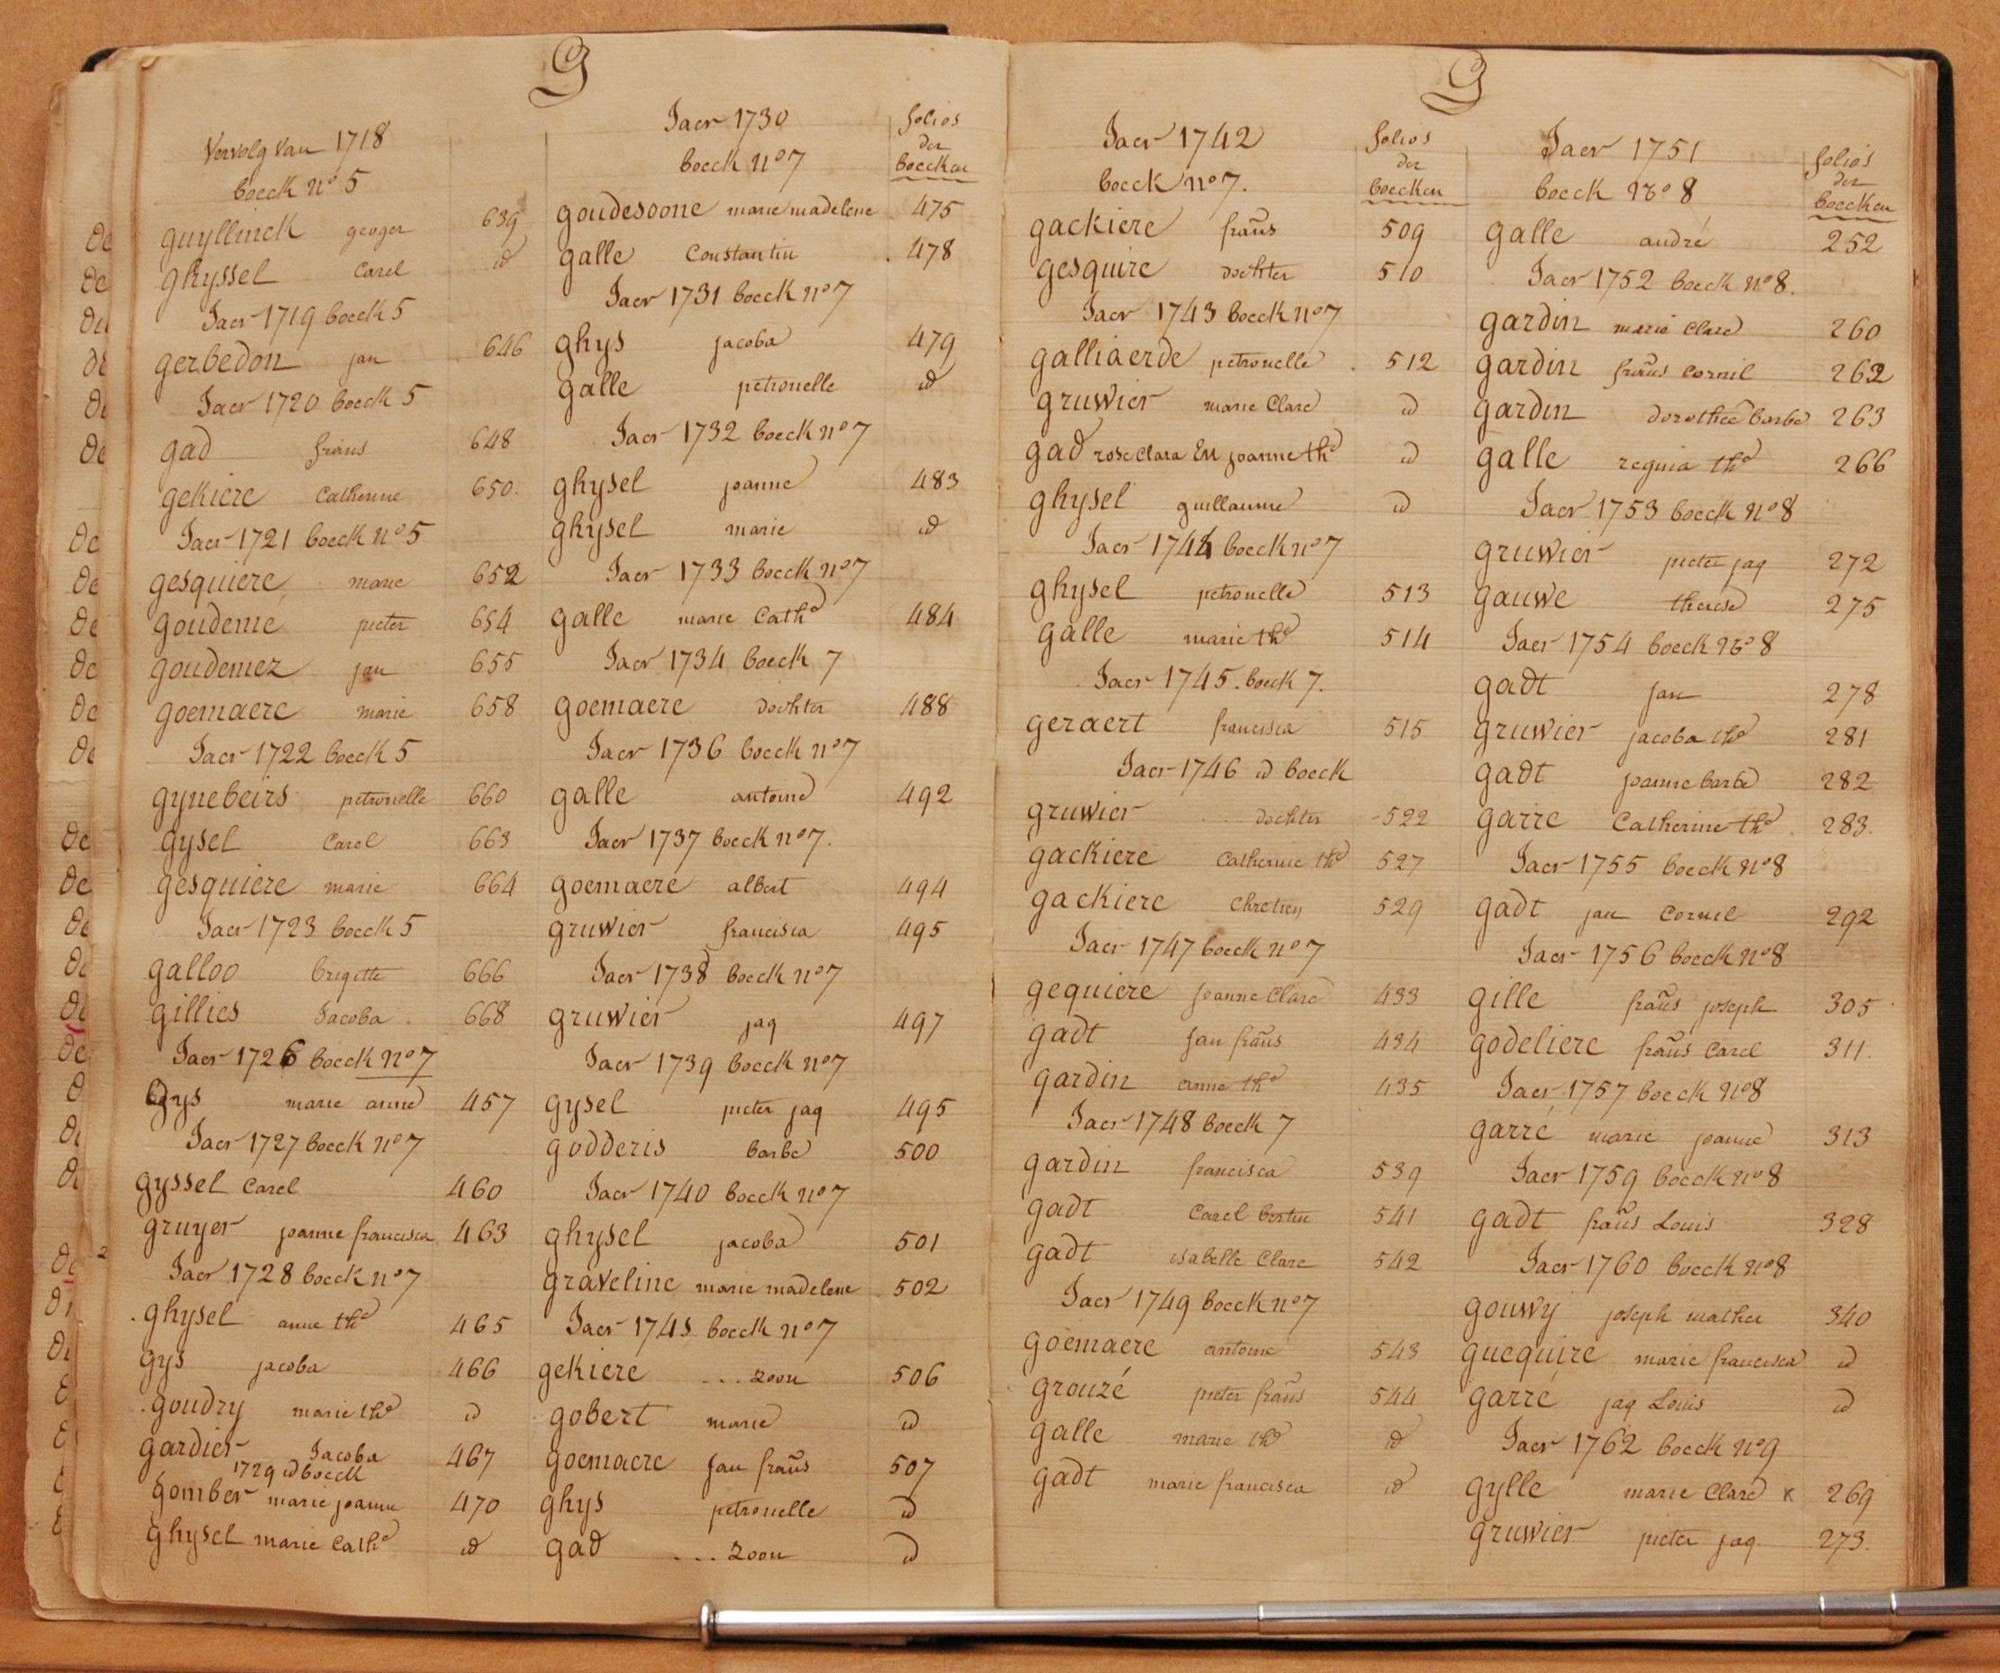 G
Vervolg van 1718
boeck nº 5
guyllinck geoger 639
ghyssel Carel id
Jaer 1719 boeck 5
gerbedon jan 646
Jaer 1720 boeck 5
gad frans 648
gekiere Catherine 650.
Jaer 1721 boeck nº 5
gesquiere marie 652
goudeme pieter 654
goudemez jan 655
goemaere marie 658
Jaer 1722 boeck 5
gynebeirs petronelle 660
gysel Carel 663
gesquiere marie 664
Jaer 1723 boeck 5
galloo brigitte 666
gillies Jacoba 668
Jaer 1726 boeck nº 7
gys marie anne 457
Jaer 1727 boeck nº 7
gyssel Carel 460
gruyer joanne francisca 463
Jaer 1728 boeck nº 7
ghysel anne the 465
gys jacoba 466
goudry marie the id
gardier Jacoba 467
1729 id boeck
gomber marie joanne 470
ghysel marie Cathe id
Jaer 1730
boeck nº 7
folios
der
boecken
goudesoone marie madelene 475
galle Constantin 478
Jaer 1731 boeck nº 7
ghys jacoba 479
galle petronelle id
Jaer 1732 boeck nº 7
ghysel joanne 483
ghysel marie id
Jaer 1733 boeck nº 7
galle marie Cathe 484
Jaer 1734 boeck 7
goemaere dochter 488
Jaer 1736 boeck nº 7
galle antoine 492
Jaer 1737 boeck nº 7.
goemaere albert 494
gruwier francisca 495
Jaer 1738 boeck nº 7
gruwier jaq 497
Jaer 1739 boeck nº 7
gysel pieter jaq 495
godderis barbe 500
Jaer 1740 boeck nº 7
ghysel jacoba 501
graveline marie madelene 502
Jaer 1741 boeck nº 7
gekiere ... zoon 506
gobert marie id
goemaere jan frans 507
ghys petronelle id
gad ... zoon id
G
Jaer 1742
boeck nº 7.
folios
der
boecken
gackiere frans 509
gesquire dochter 510
Jaer 1743 boeck nº 7
galliaerde petronelle 512
gruwier marie Clare id
gad rose Clara En joanne the id
ghysel guillaume id
Jaer 1744 boeck nº 7
ghysel petronelle 513
galle marie the 514
Jaer 1745. boeck 7.
geraert francisca 515
Jaer 1746 id boeck
gruwier dochter 522
gackiere Catherine the 527
gackiere Chretien 529
Jaer 1747 boeck nº 7
gequiere Joanne Clare 433
gadt Jan frans 434
gardin anne the 435
Jaer 1748 boeck 7
gardin francisca 539
gadt Carel bertin 541
gadt isabelle Clare 542
Jaer 1749 boeck nº 7
goemaere antoine 543
grouzé pieter frans 544
galle marie the id
gadt marie francisca id
Jaer 1751
boeck nº 8
folios
der
boecken
galle andré 252
Jaer 1752 boeck nº 8.
gardin marie Clare 260
gardin frans Cornil 262
gardin dorothee barbe 263
galle regina the 266
Jaer 1753 boeck nº 8
gruwier pieter jaq 272
gauwe therese 275
Jaer 1754 boeck nº 8
gadt jan 278
gruwier jacoba the 281
gadt joanne barbe 282
garre Catherine the 283.
Jaer 1755 boeck nº 8
gadt jan Cornil 292
Jaer 1756 boeck nº 8
gille frans joseph 305
godeliere frans Carel 311.
Jaer 1757 boeck nº 8
garré marie joanne 313
Jaer 1759 boeck nº 8
gadt frans Louis 328
Jaer 1760 boeck nº 8
gouwy joseph mathe 340
guequire marie francisca id
garré jaq Louis id
Jaer 1762 boeck nº 9
gylle marie Clare x 269
gruwier pieter jaq 273.